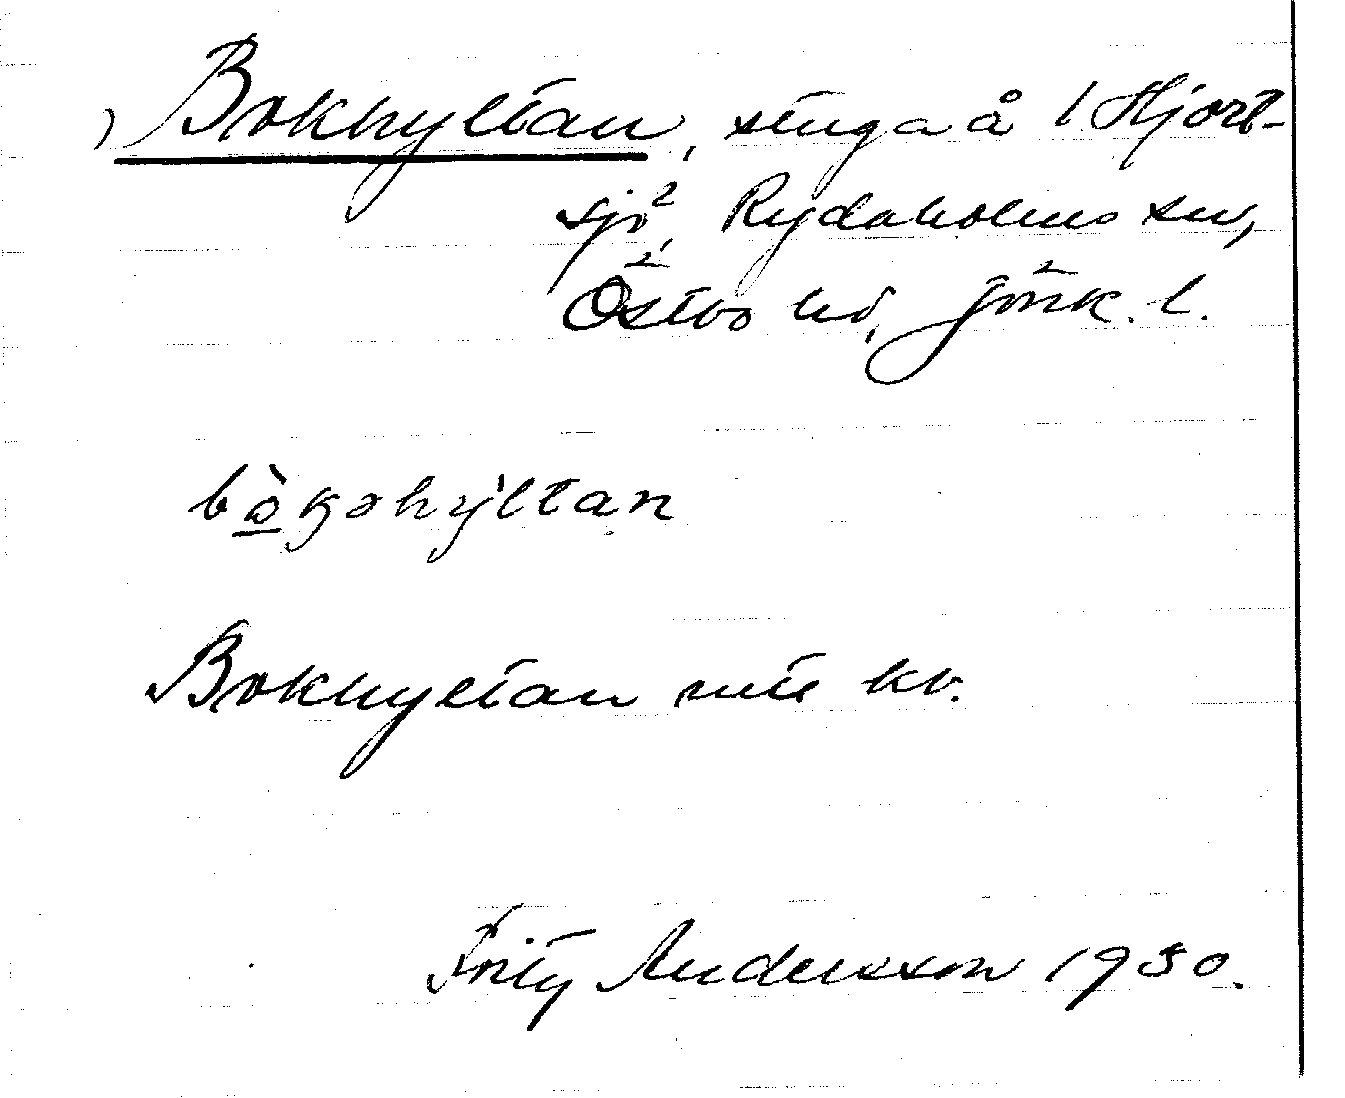 Bokhyltan, stuga å 1 Hjort-
sjö, Rydaholms sn,
Östbo hd, Jönk. l.
bò̲kəhy̍ltan
Bokhyltan ute kv.
Fritz Andersson 1930.